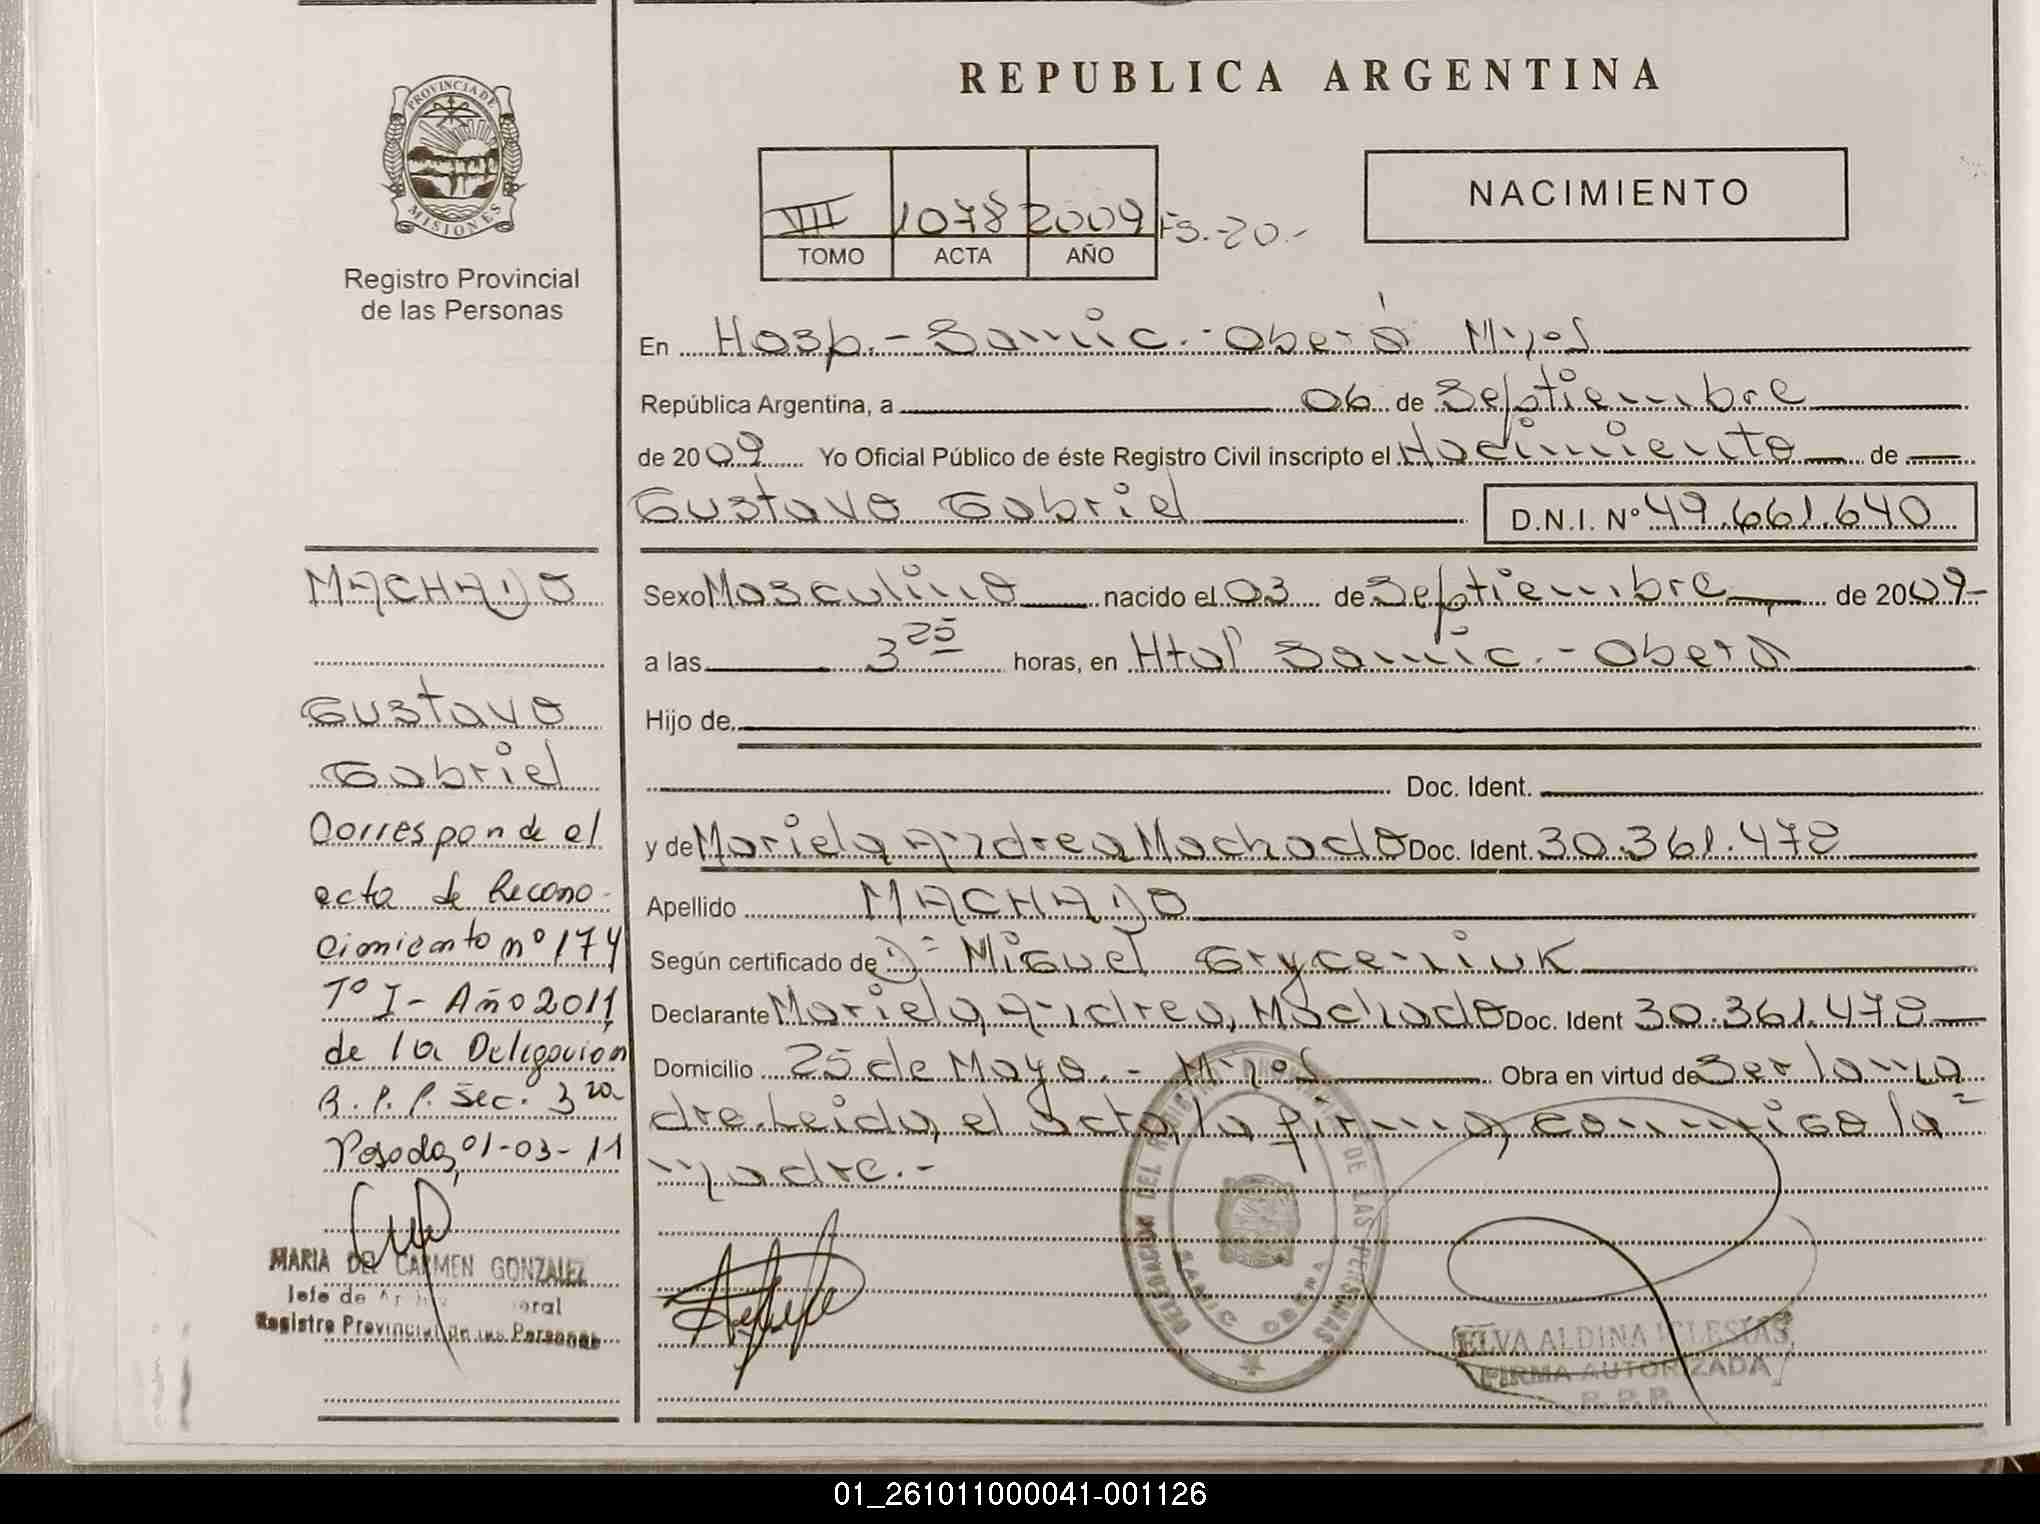 REPUBLICA ARGENTINA
PROVINCIA DE
MISIONES
Registro Provincial
de las Personas
VIII 1078 2009 Fs.-20.-
TOMO ACTA AÑO
NACIMIENTO
En Hosp.- Samic.- Oberá Mnes
República Argentina, a 06 de Septiembre
de 2009 Yo Oficial Público de éste Registro Civil inscripto el Nacimiento de
Gustavo Gabriel D.N.I. Nº 49.661.640
Sexo Masculino nacido el 03 de Septiembre de 2009-
a las 3 25 horas, en Htal Samic.- Oberá
Hijo de
Doc. Ident.
y de Mariela Andrea Machado Doc. Ident. 30.361.478
Apellido MACHADO
Según certificado de D= Miguel Gryceniuk
Declarante Mariela Andrea, Machado Doc. Ident 30.361.478
Domicilio 25 de Mayo.- Mnes Obra en virtud de Ser la ma
dre. Leída, el acta, la firma, conmigo la=
madre.-
MACHADO
Gustavo
Gabriel
Corresponde al
acta de Recono-
cimiento nº 174
Tº I - Año 2011
de la Delegacion
R.P.P. Sec. 3ra
Posadas, 01-03-11
MARIA DEL CARMEN GONZALEZ
Jefe de
Registro Provincial de las Personas
DELEGACION DEL REGISTRO PROVINCIAL DE LAS PERSONAS
SAMIC OBERA
ELVA ALDINA IGLESIAS
FIRMA AUTORIZADA
R.P.P.
01_261011000041-001126